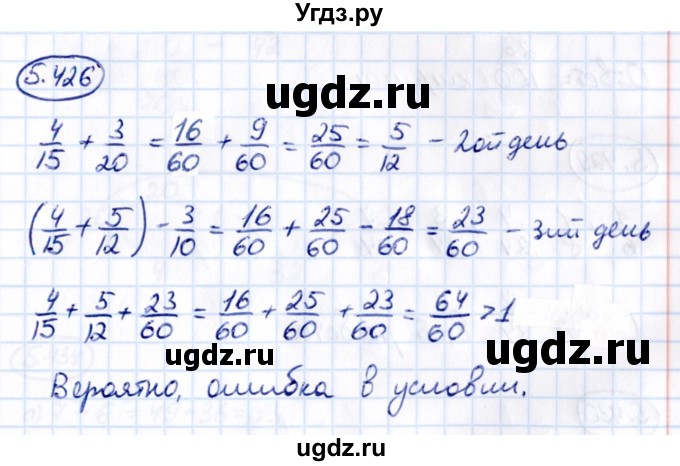 Угдз.ру
5.426
ugdz.ru
4/15 + 3/20 = 16/60 + 9/60 = 25/60 = 5/12 - 2ой день
ugdz.ru
(4/15 + 5/12) - 3/10 = 16/60 + 25/60 - 18/60 = 23/60 - 3ий день
4/15 + 5/12 + 23/60 = 16/60 + 25/60 + 23/60 = 64/60 > 1
ugdz.ru
Вероятно, ошибка в условии.
ugdz.ru